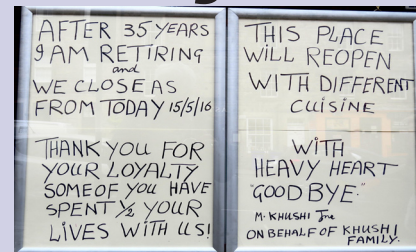 AFTER 35 YEARS
I AM RETIRING
and
WE CLOSE AS
FROM TODAY 15/5/16
THANK YOU FOR
YOUR LOYALTY
SOME OF YOU HAVE
SPENT ½ YOUR
LIVES WITH US!
THIS PLACE
WILL REOPEN
WITH DIFFERENT
CUISINE
WITH
HEAVY HEART
"GOOD BYE."
M. KHUSHI Jnr
ON BEHALF OF KHUSHI
FAMILY.